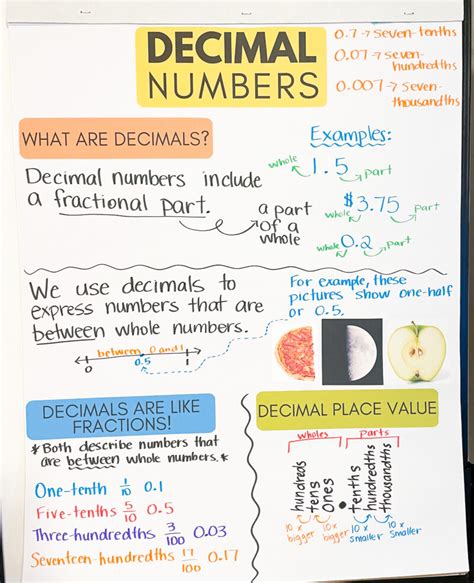 DECIMAL
NUMBERS
0.7 → seven-tenths
0.07 → seven-
hundredths
0.007 → seven-
thousandths
WHAT ARE DECIMALS?
Decimal numbers include
a fractional part.
a part
of a
whole
Examples:
whole 1.5 part
$3.75
whole part
whole 0.2 part
We use decimals to
express numbers that are
between whole numbers.
between 0 and 1
0 0.5 1
For example, these
pictures show one-half
or 0.5.
DECIMALS ARE LIKE
FRACTIONS!
* Both describe numbers that
are between whole numbers. *
One-tenth 1/10 0.1
Five-tenths 5/10 0.5
Three-hundredths 3/100 0.03
Seventeen-hundredths 17/100 0.17
DECIMAL PLACE VALUE
wholes parts
hundreds
tens
ones
.
tenths
hundredths
thousandths
10 x 10 x 10 x 10 x
bigger bigger smaller smaller